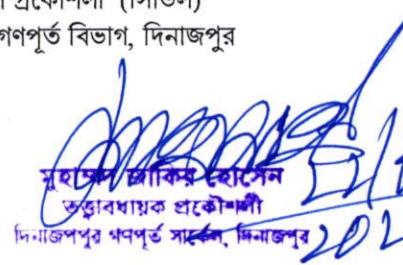 প্রকৌশলী (সিভিল)
গণপূর্ত বিভাগ, দিনাজপুর
মুহাম্মদ জাকির হোসেন
তত্ত্বাবধায়ক প্রকৌশলী
দিনাজপুর গণপূর্ত সার্কেল, দিনাজপুর